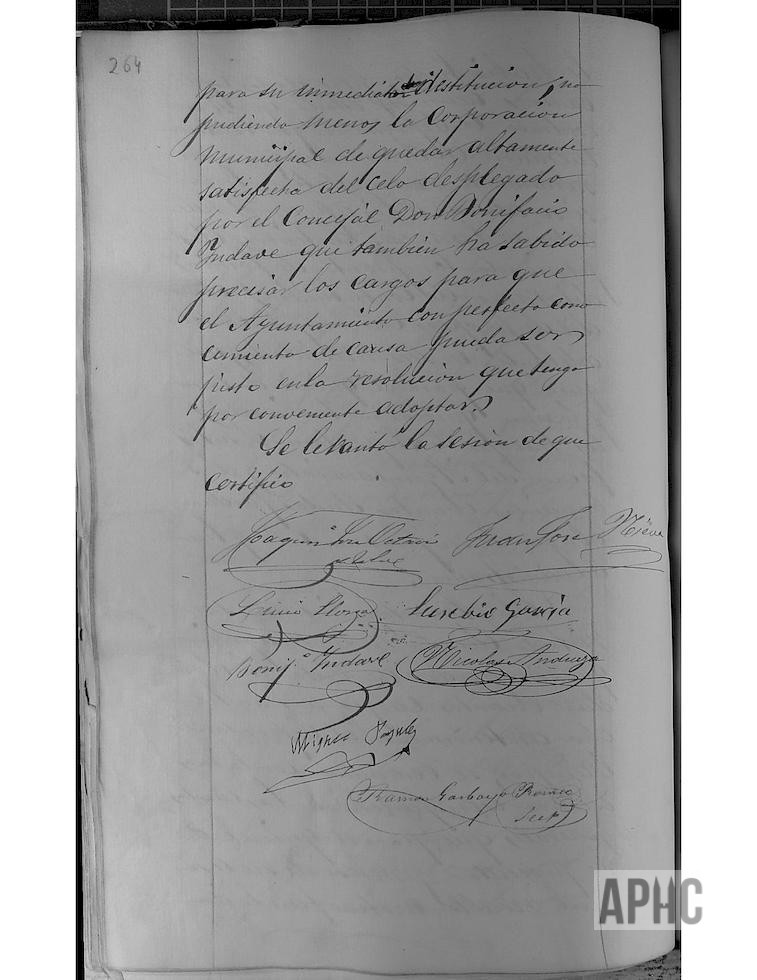 264
para su inmediata destitucion, no
pudiendo menos la Corporacion
Municipal de quedar altamente
satisfecha del celo desplegado
por el Concejal Don Bonifacio
Yndave que tambien ha sabido
precisar los cargos para que
el Ayuntamiento con perfecto cono
cimiento de causa pueda ser
justo en la resolucion que tenga
por conveniente adoptar.
Se levantó la sesion de que
certifico
Joaquin Juan José
Eusebio Garcia
Bonif.º Yndave Nicolas Andueza
Miguel Gonzalez
Ramon Garbayo
APHC